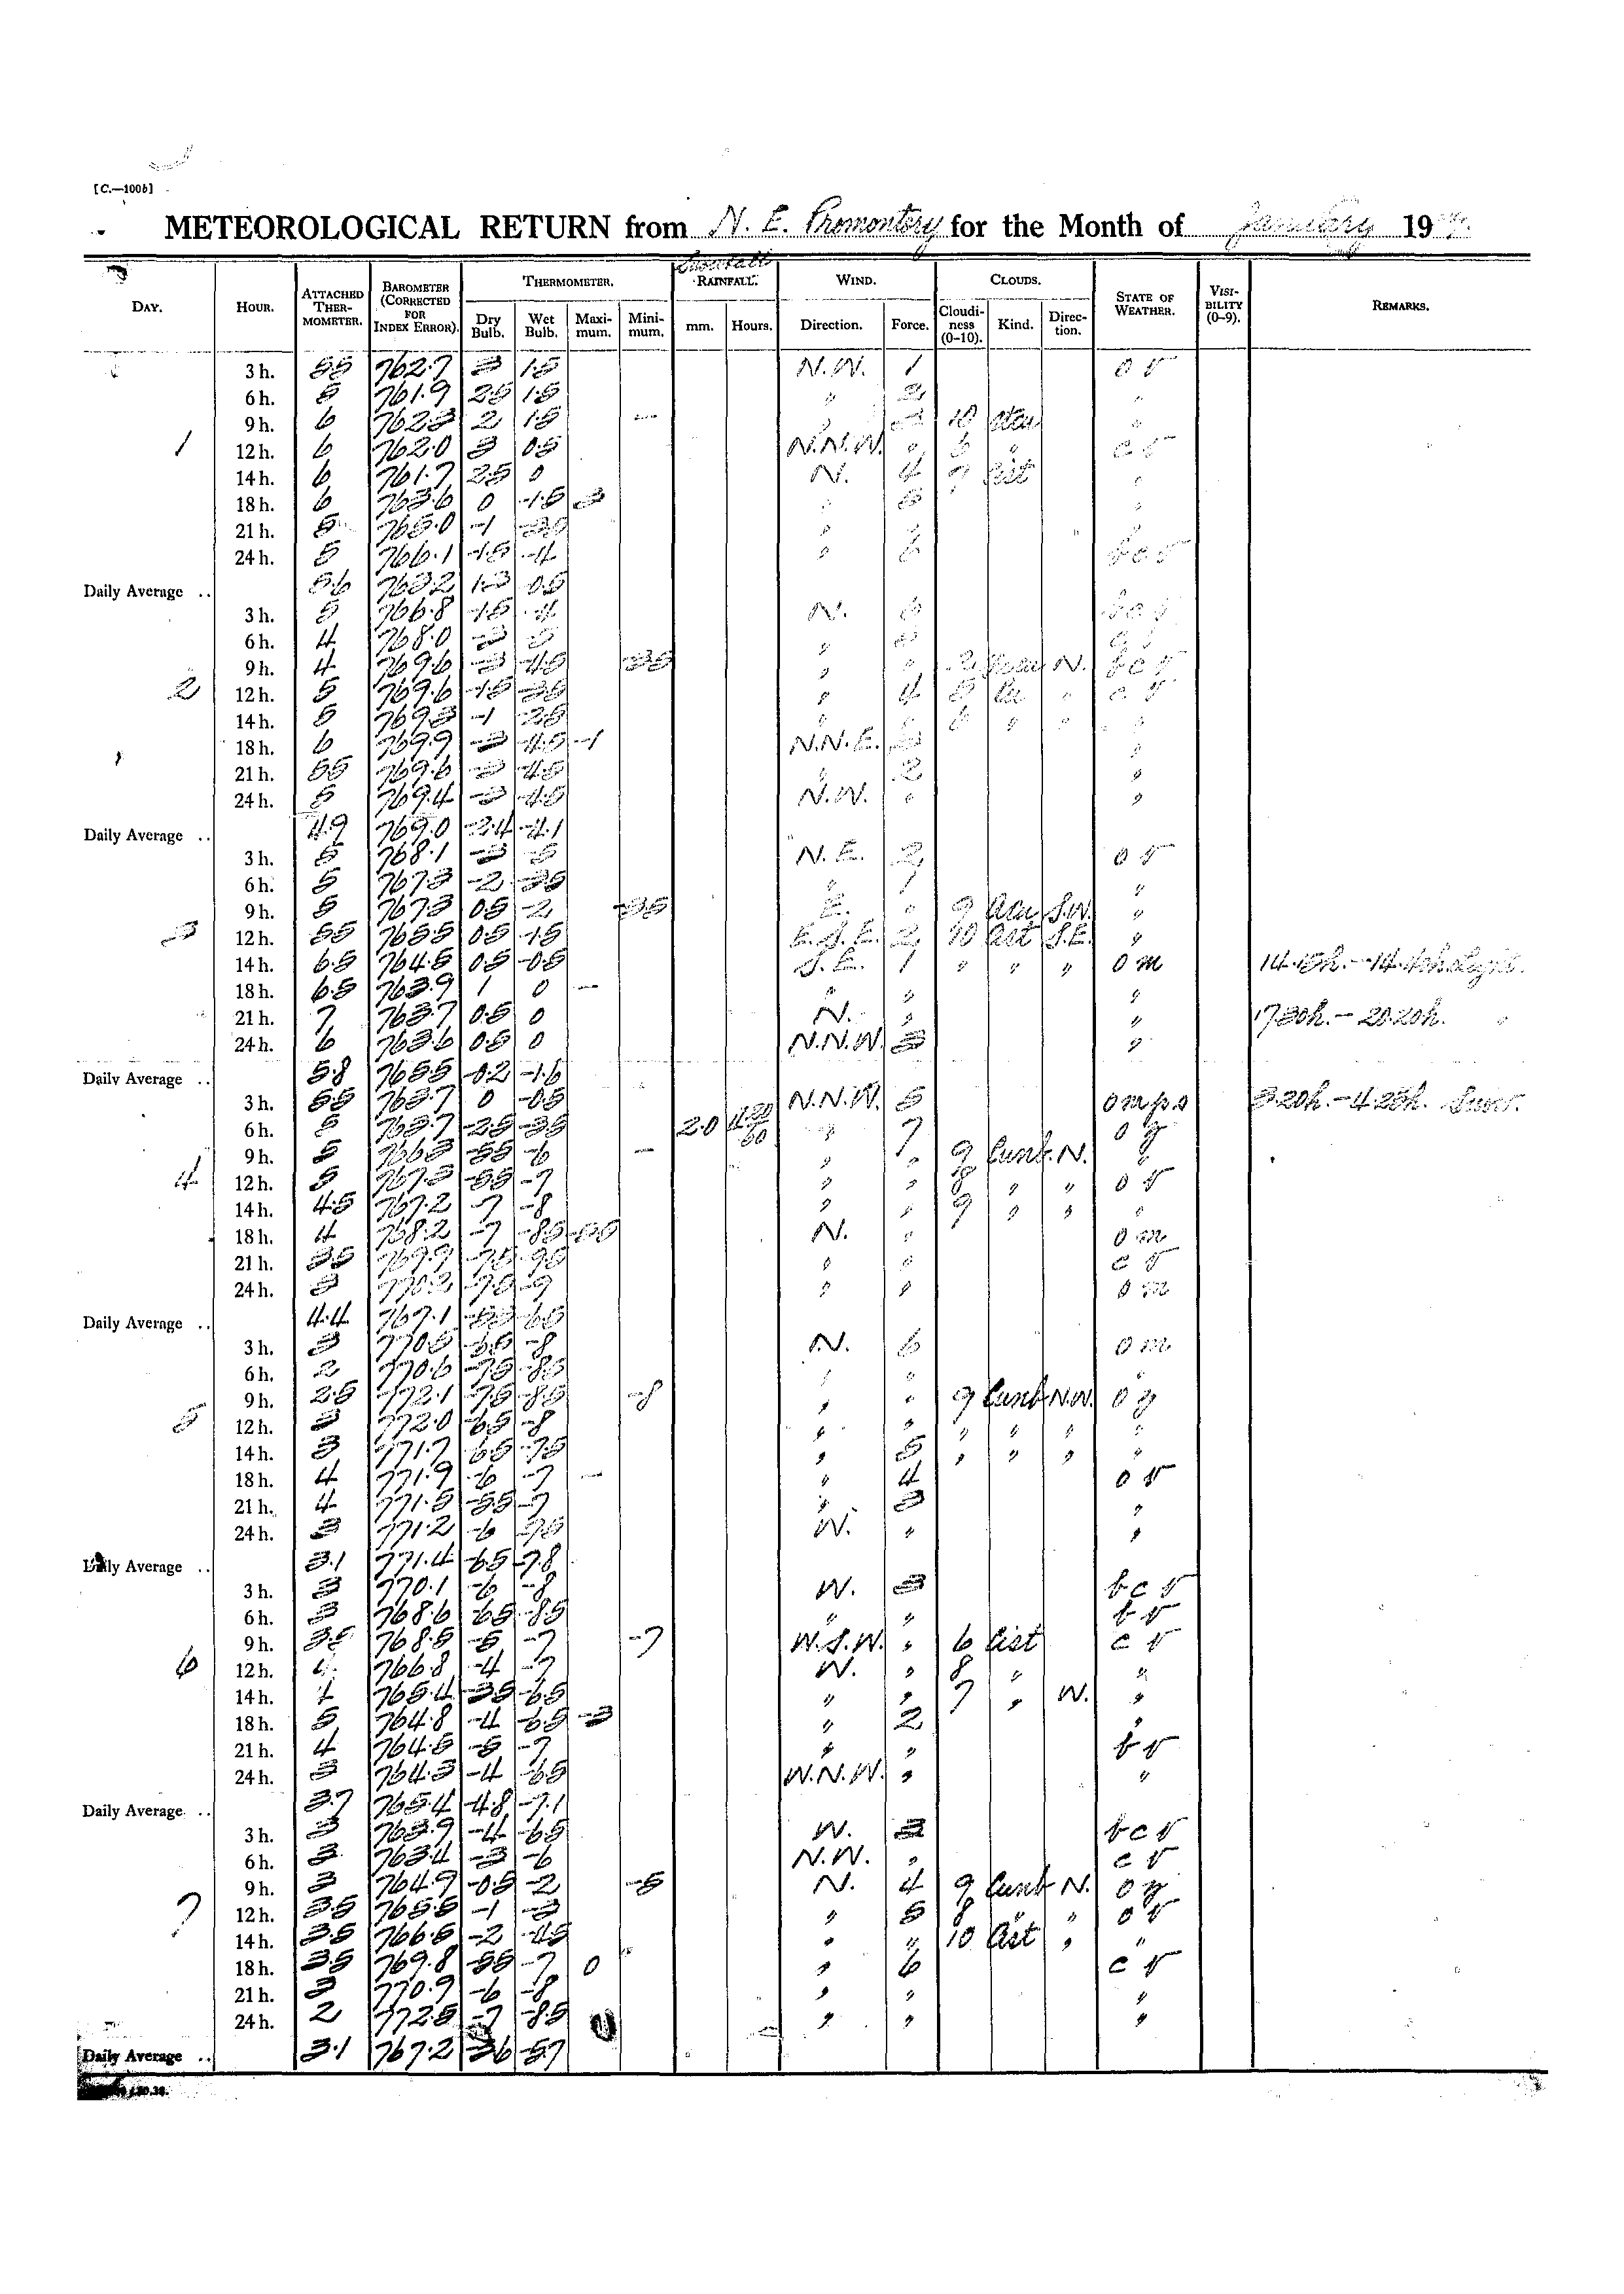 [C.—100b]
METEOROLOGICAL RETURN from N. E. Promontory for the Month of January 19
DAY. HOUR. ATTACHED THERMOMETER. BAROMETER (CORRECTED FOR INDEX ERROR). THERMOMETER. Snowfall RAINFALL. WIND. CLOUDS. STATE OF WEATHER. VISIBILITY (0-9). REMARKS.
Dry Bulb. Wet Bulb. Maximum. Minimum. mm. Hours. Direction. Force. Cloudiness (0-10). Kind. Direction.
3 h. 5.5 762.7 3 1.5 N.W. 1 o v
6 h. 5 761.9 2.5 1.5 " 2 "
9 h. 6 762.3 2 1.5 — " 3 10 "
1 12 h. 6 762.0 3 0.5 N.N.W. " 6 " c v
14 h. 6 761.7 2.5 0 N. 4 9 cist "
18 h. 6 763.6 0 -1.5 3 " 5 "
21 h. 5 765.0 -1 "
24 h. 5 766.1 -1.5 -4 " 6 b c v
Daily Average .. 5.6 763.2 1.3 -0.5
3 h. 5 766.8 -1.5 -4 N. 6 b c v
6 h. 4 768.0 -3 -5 "
9 h. 4 769.6 -3 -4.5 -3.5 " " N. b c v
2 12 h. 5 769.6 -1.5 -3.5 " 4 8 cu " c v
14 h. 5 769.3 -1 -2.5 " " 6 " " "
18 h. 6 769.9 -3 -4.5 -1 N.N.E. 3 "
21 h. 5.5 769.6 -3 -4.5 " 2 "
24 h. 5 769.4 -3 -4.5 N.W. " "
Daily Average .. 4.9 769.0 -2.4 -4.1
3 h. 5 768.1 -3 -5 N.E. 2 o v
6 h. 5 767.3 -2 -3.5 " 1 "
9 h. 5 767.3 0.5 -2 -3.5 E. " 9 Acu S.W. "
3 12 h. 5.5 765.5 0.5 -1.5 E.S.E. 2 10 Ast S.E. "
14 h. 6.5 764.5 0.5 -0.5 S.E. 1 " " " o m 14.15h.-14.40h. Light.
18 h. 6.5 763.9 1 0 — " " "
21 h. 7 763.7 0.5 0 N. " " 17.30h.-20.20h. "
24 h. 6 763.6 0.5 0 N.N.W. 3 "
Daily Average .. 5.8 765.5 -0.2 -1.6
3 h. 5.5 763.7 0 -0.5 N.N.W. 5 o m p s 3.20h.-4.25h. Snow.
6 h. 5 763.7 -2.5 -3.5 2.0 " 7 o g
9 h. 5 766.3 -5.5 -6 — " " 9 Cunb. N. "
4 12 h. 5 767.3 -5.5 -7 " " 8 " " o v
14 h. 4.5 767.2 -7 -8 " " 9 " " "
18 h. 4 768.2 -7 -8.5 N. " o m
21 h. 3.5 769.9 -7.5 -9.5 " " c v
24 h. 3 770.3 -7.5 -9 " " o m
Daily Average .. 4.4 767.1
3 h. 3 770.5 -6.5 -8 N. 6 o m
6 h. 2 770.6 -7.5 -8.5 " " "
9 h. 2.5 772.1 -7.5 -8.5 -8 " " 9 Cunb N.W. o g
5 12 h. 3 772.0 -6.5 -8 " " " " " "
14 h. 3 771.7 -6.5 -7.5 " 5 " " " "
18 h. 4 771.9 -6 -7 — " 4 o v
21 h. 4 771.5 -5.5 -7 " 3 "
24 h. 3 771.2 -6 -7.5 W. " "
Daily Average .. 3.1 771.4 -6.5 -7.8
3 h. 3 770.1 -6 -8 W. 3 b c v
6 h. 3 768.6 -6.5 -8.5 " " b v
9 h. 3.5 768.5 -5 -7 -7 W.S.W. " 6 Cist c v
6 12 h. 4 766.8 -4 -7 W. " 8 " "
14 h. 4 765.4 -3.5 -6.5 " " 7 " W. "
18 h. 5 764.8 -4 -6.5 -3 " 2 "
21 h. 4 764.5 -5 -7 " " b v
24 h. 3 764.3 -4 -6.5 W.N.W. " "
Daily Average .. 3.7 765.4 -4.8 -7.1
3 h. 3 763.9 -4 -6.5 W. 3 b c v
6 h. 3 763.4 -3 -6 N.W. " c v
9 h. 3 764.9 -0.5 -2 -5 N. 4 9 Cunb N. o g
7 12 h. 3.5 765.5 -1 -3 " 5 8 " " o v
14 h. 3.5 766.5 -2 -4.5 " " 10 Ast " "
18 h. 3.5 769.8 -5.5 -7 0 " 6 c v
21 h. 3 770.9 -6 -8 " " "
24 h. 2 772.5 -7 -8.5 " " "
Daily Average .. 3.1 767.2 -3.6 -5.7